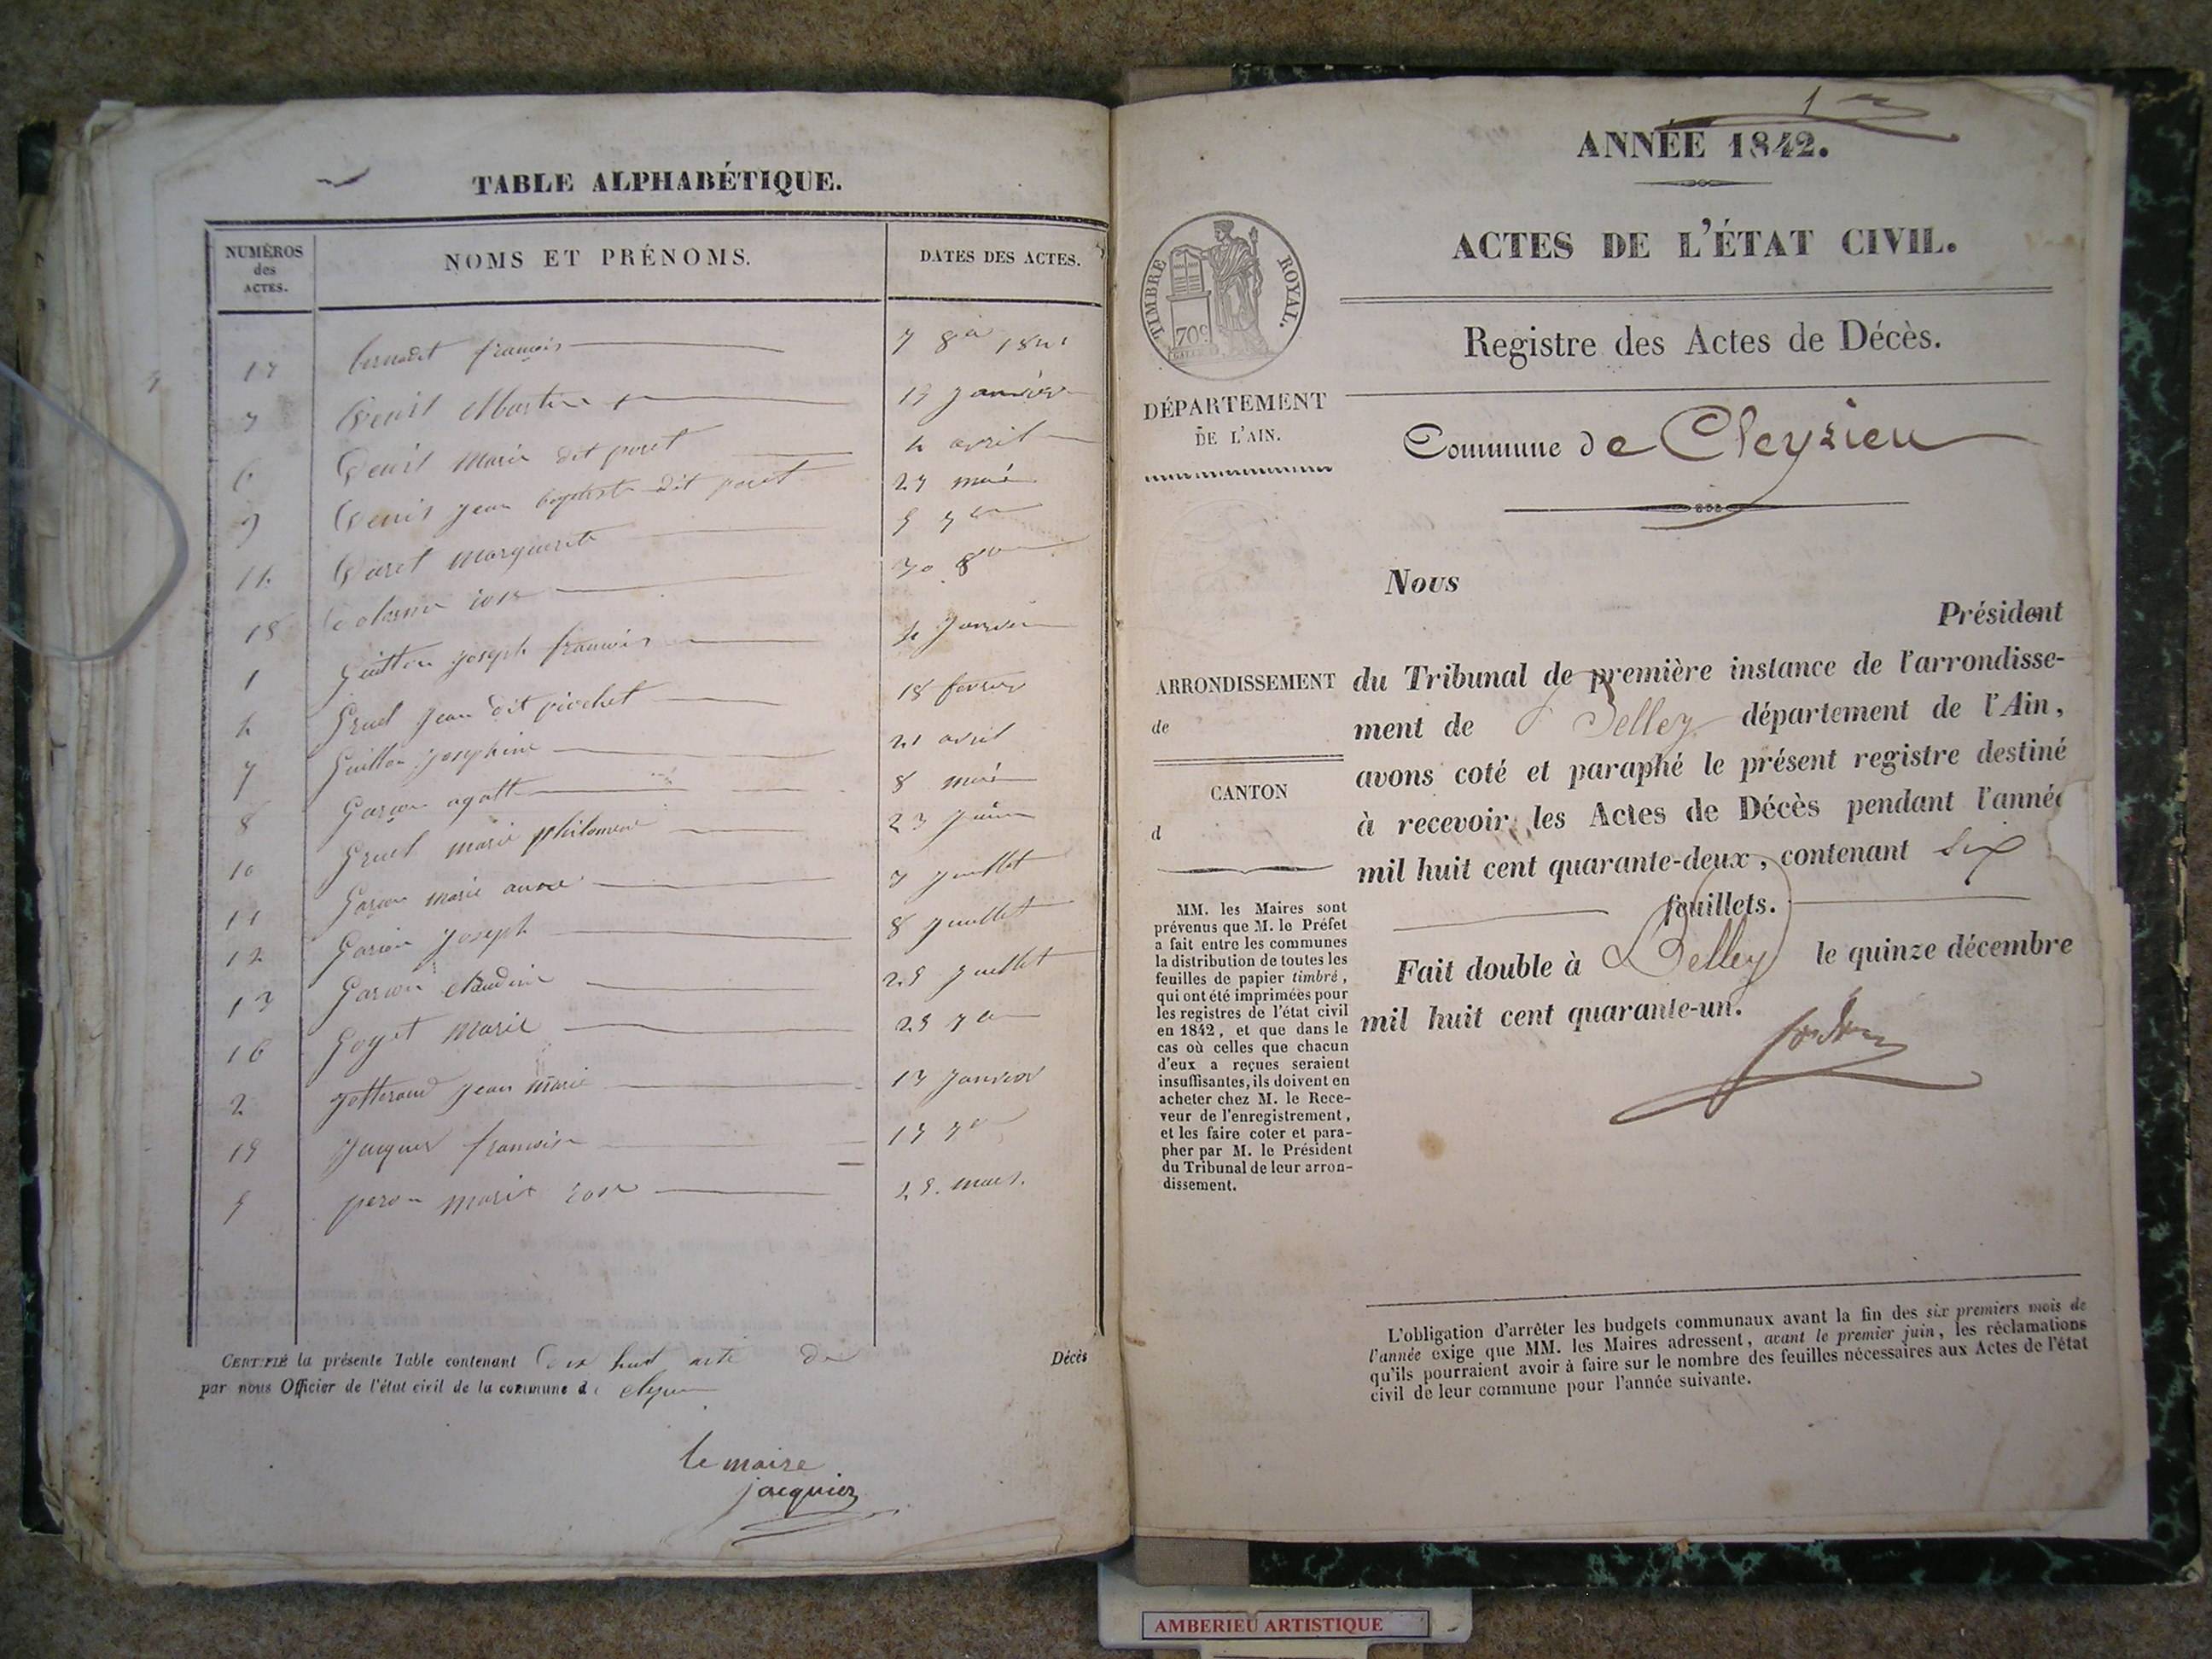 TABLE ALPHABÉTIQUE.
NUMÉROS des ACTES.
NOMS ET PRÉNOMS.
DATES DES ACTES.
17 bernadet françois 7 8bre 1841
3 Denis Martin 13 janvier
6 Denis Marie dit poret 4 avril
9 Denis jean baptiste dit poret 27 mai
14 marguerite 5 7bre
18 rose 30 8bre
1 Guitton joseph françois 4 janvier
4 Gruel jean dit pivchet 18 fevrier
7 Guitton josephine 21 avril
8 Garçon agatte 8 mai
10 Gruel marie philomene 23 juin
11 Garçon marie anne 7 juillet
12 Garçon joseph 8 juillet
13 Garçon claudine 25 juillet
16 Goyet Marie 25 7bre
2 jotterand jean marie 13 janvier
15 jacquer françois 17 7bre
5 peron marie rose 25 mars.
CERTIFIÉ la présente Table contenant dix huit acte de Décès
par nous Officier de l'état civil de la commune de
le maire
jacquier
1er
ANNÉE 1842.
ACTES DE L'ÉTAT CIVIL.
TIMBRE ROYAL.
70c
Registre des Actes de Décès.
DÉPARTEMENT
DE L'AIN.
Commune de Cleyzieu
Nous
Président
ARRONDISSEMENT
de
CANTON
d
du Tribunal de première instance de l'arrondisse-
ment de Belley département de l'Ain,
avons coté et paraphé le présent registre destiné
à recevoir les Actes de Décès pendant l'année
mil huit cent quarante-deux, contenant six
feuillets.
Fait double à Belley le quinze décembre
mil huit cent quarante-un.
MM. les Maires sont
prévenus que M. le Préfet
a fait entre les communes
la distribution de toutes les
feuilles de papier timbré,
qui ont été imprimées pour
les registres de l'état civil
en 1842, et que dans le
cas où celles que chacun
d'eux a reçues seraient
insuffisantes, ils doivent en
acheter chez M. le Rece-
veur de l'enregistrement,
et les faire coter et para-
pher par M. le Président
du Tribunal de leur arron-
dissement.
L'obligation d'arrêter les budgets communaux avant la fin des six premiers mois de
l'année exige que MM. les Maires adressent, avant le premier juin, les réclamations
qu'ils pourraient avoir à faire sur le nombre des feuilles nécessaires aux Actes de l'état
civil de leur commune pour l'année suivante.
AMBERIEU ARTISTIQUE